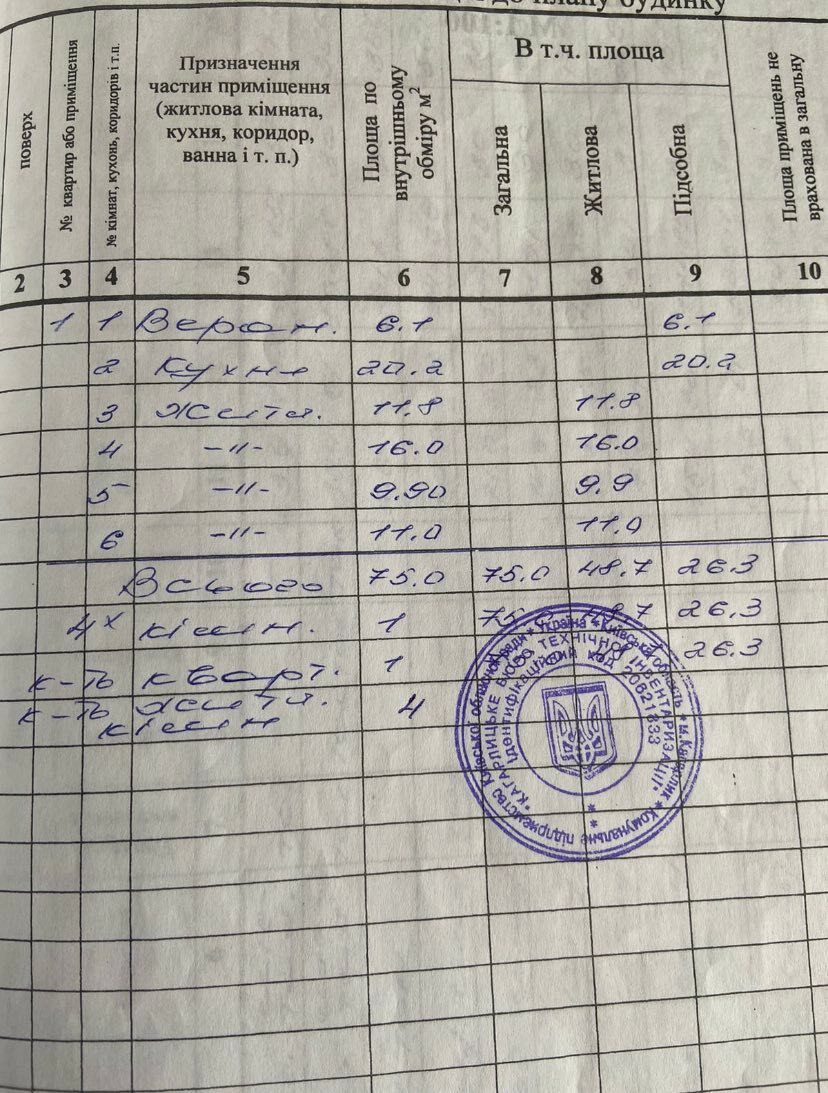 до плану будинку
поверх
№ квартир або приміщення
№ кімнат, кухонь, коридорів і т.п.
Призначення
частин приміщення
(житлова кімната,
кухня, коридор,
ванна і т. п.)
Площа по
внутрішньому
обміру м²
В т.ч. площа
Загальна
Житлова
Підсобна
Площа приміщень не
врахована в загальну
2 3 4 5 6 7 8 9 10
1 1 Веран. 6.1 6.1
2 Кухня 20.2 20.2
3 Житл. 11.8 11.8
4 -"- 16.0 16.0
5 -"- 9.90 9.9
6 -"- 11.0 11.0
Всього 75.0 75.0 48.7 26.3
4х кімн. 1 75.0 48.7 26.3
к-ть кварт. 1 26.3
к-ть житл. 4
кімн
Київської обласної ради * Україна * Київська область * м.Кагарлик * Комунальне підприємство
"КАГАРЛИЦЬКЕ БЮРО ТЕХНІЧНОЇ ІНВЕНТАРИЗАЦІЇ"
Ідентифікаційний код 20621833